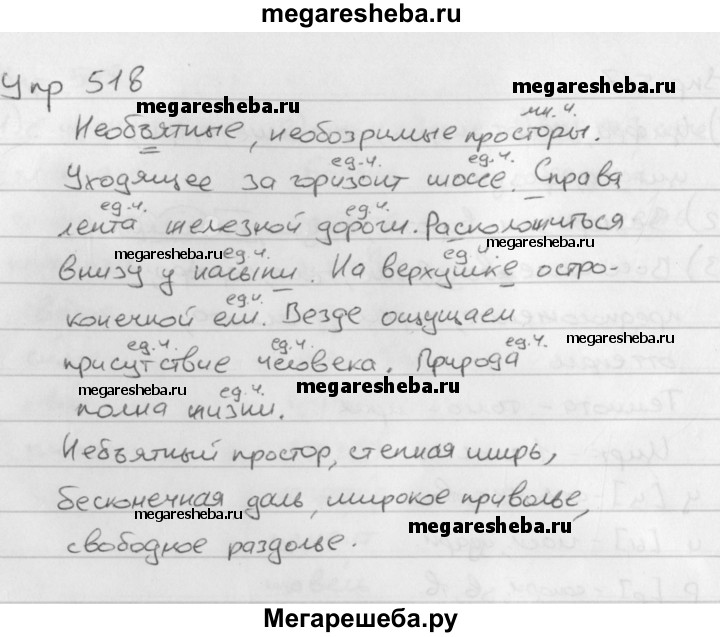 megaresheba.ru
Упр 518
megaresheba.ru
megaresheba.ru
мн.ч.
Необъятные, необозримые просторы.
ед.ч. ед.ч.
Уходящее за горизонт шоссе. Справа
ед.ч. ед.ч.
лента железной дороги. Расположиться
megaresheba.ru ед.ч. ед megaresheba.ru
внизу у насыпи. На верхушке остро-
ед.ч.
конечной ели. Везде ощущаем
ед.ч. ед.ч. ед.ч.
присутствие человека. Природа
megaresheba.ru ед.ч. megaresheba.ru
полна жизни.
Небъятный простор, степная ширь,
бесконечная даль, широкое приволье,
megaresheba.ru megaresheba.ru
свободное раздолье.
Мегарешеба.ру